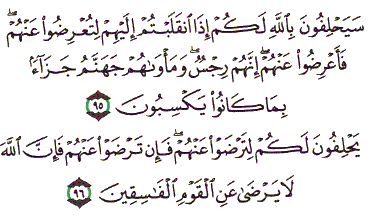 سَيَحْلِفُونَ بِاللَّهِ لَكُمْ إِذَا انْقَلَبْتُمْ إِلَيْهِمْ لِتُعْرِضُوا عَنْهُمْ ۖ
فَأَعْرِضُوا عَنْهُمْ ۖ إِنَّهُمْ رِجْسٌ ۖ وَمَأْوَىٰهُمْ جَهَنَّمُ جَزَآءًۢ
بِمَا كَانُوا يَكْسِبُونَ ٩٥
يَحْلِفُونَ لَكُمْ لِتَرْضَوْا عَنْهُمْ ۖ فَإِن تَرْضَوْا عَنْهُمْ فَإِنَّ اللَّهَ
لَا يَرْضَىٰ عَنِ الْقَوْمِ الْفَاسِقِينَ ٩٦